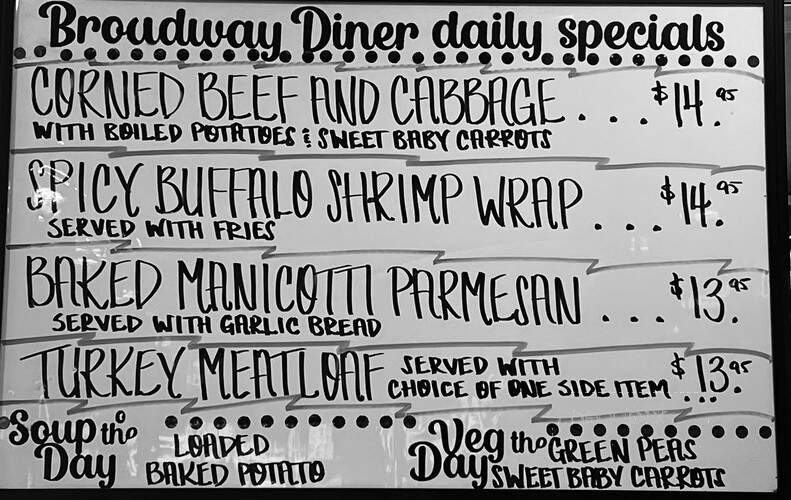 Broadway Diner daily specials
CORNED BEEF AND CABBAGE . . . $14.95
WITH BOILED POTATOES & SWEET BABY CARROTS
SPICY BUFFALO SHRIMP WRAP . . . $14.95
SERVED WITH FRIES
BAKED MANICOTTI PARMESAN . . . $13.95
SERVED WITH GARLIC BREAD
TURKEY MEATLOAF SERVED WITH CHOICE OF ONE SIDE ITEM ... $13.95
Soup of the Day
LOADED
BAKED POTATO
Veg the Day
GREEN PEAS
SWEET BABY CARROTS